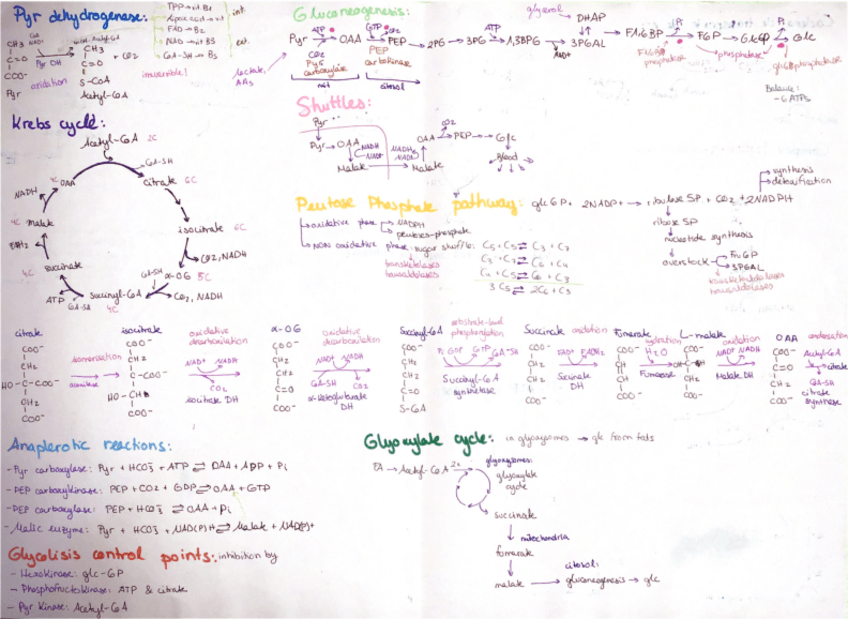 Pyr dehydrogenase:
TPP → vit B1
Lipoic acid → vit
FAD → B2
NAD → vit B3
CoA-SH → B5
int.
ext.
CH3
C=O
COO-
Pyr
NAD+
Pyr DH
oxidation
CH3
C=O
S-CoA
Acetyl-CoA
+ CO2
irreversible!
Gluconeogenesis:
Pyr → OAA → PEP → 2PG → 3PG → 1,3BPG → 3PGAL → F1,6BP → F6P → Glc6P → Glc
ATP
CO2
GTP
CO2
ATP
NAD+
glycerol → DHAP
Pi
Pi
Pyr carboxylase
PEP carboxikinase
mit
citosol
lactate, AAs
F1,6BP phosphatase
phosphatase
glc6Pphosphatase
Balance:
-6 ATPs
Krebs cycle:
Acetyl-CoA 2C
CoA-SH
citrate 6C
isocitrate 6C
CO2, NADH
α-OG 5C
CoA-SH
CO2, NADH
Succinyl-CoA
4C
CoA-SH
ATP
succinate
4C
FADH2
4C malate
NADH
4C OAA
Shuttles:
Pyr
Pyr → OAA
NADH
NAD+
Malate → Malate
NADH
NAD+
OAA → PEP → Glc
CO2
Blood
Pentose Phosphate pathway: glc6P + 2NADP+ → ribulose 5P + CO2 + 2NADPH
synthesis
detoxification
oxidative phase → NADPH
pentoses-phosphate
NON oxidative phase: sugar shuffle:
transketolases
transaldolases
C5 + C5 ⇌ C3 + C7
C7 + C3 ⇌ C6 + C4
C4 + C5 ⇌ C6 + C3
3 C5 ⇌ 2C6 + C3
ribose 5P
nucleotide synthesis
overstock
Fru6P
3PGAL
transketolases
transaldolases
citrate
COO-
CH2
HO-C-COO-
CH2
COO-
isomerisation
aconitase
isocitrate
COO-
CH2
C-COO-
HO-CH
COO-
oxidative decarboxilation
NAD+ NADH
CO2
isocitrate DH
α-OG
COO-
CH2
CH2
C=O
COO-
oxidative decarboxilation
NAD+ NADH
CoA-SH CO2
α-ketoglutarate DH
Succinyl-CoA
COO-
CH2
CH2
C=O
S-CoA
substrate-level phosphorylation
Pi GDP GTP CoA-SH
Succinyl-CoA synthetase
Succinate
COO-
CH2
CH2
COO-
oxidation
FAD+ FADH2
Succinate DH
Fumarate
COO-
CH
CH
COO-
hydration
H2O
Fumarase
L-malate
COO-
CH2
COO-
oxidation
NAD+ NADH
Malate DH
OAA
COO-
CH2
C=O
COO-
condensation
Acetyl-CoA
citrate
CoA-SH
citrate synthase
Anaplerotic reactions:
- Pyr carboxylase: Pyr + HCO3- + ATP ⇌ OAA + ADP + Pi
- PEP carboxykinase: PEP + CO2 + GDP ⇌ OAA + GTP
- PEP carboxylase: PEP + HCO3- ⇌ OAA + Pi
- Malic enzyme: Pyr + HCO3- + NAD(P)H ⇌ Malate + NAD(P)+
Glycolisis control points: inhibition by
- Hexokinase: glc-6P
- Phosphofructokinase: ATP & citrate
- Pyr kinase: Acetyl-CoA
Glyoxylate cycle: in glyoxysomes → glc from fats
FA → Acetyl-CoA 2x
glyoxysomes:
glyoxylate cycle
succinate
mitochondria
fumarate
malate → gluconeogenesis → glc
citosol: